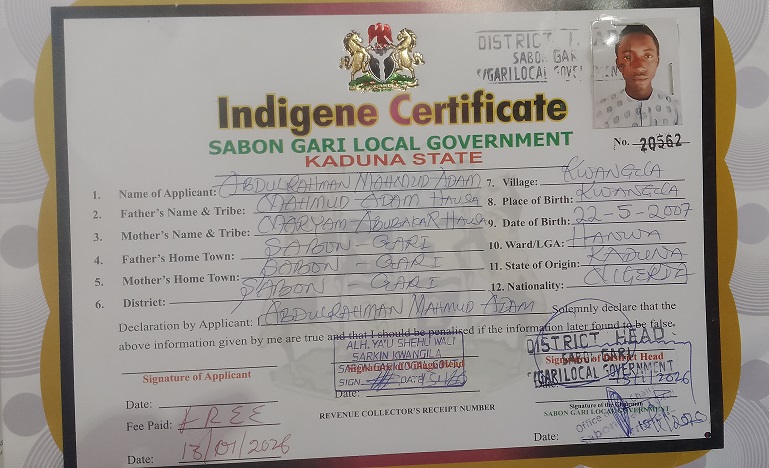 DISTRICT
SABO. GAR
GARI LOCAL GOVE
Indigene Certificate
SABON GARI LOCAL GOVERNMENT
KADUNA STATE
No. 20562
1. Name of Applicant: ABDULRAHMAN MAHMUD ADAM
2. Father's Name & Tribe: MAHMUD ADAM HAUSA
3. Mother's Name & Tribe: MARYAM ABUBAKAR HAUSA
4. Father's Home Town: SABON-GARI
5. Mother's Home Town: SABON-GARI
6. District: SABON-GARI
7. Village: KWANGILA
8. Place of Birth: KWANGILA
9. Date of Birth: 22-5-2007
10. Ward/LGA: HANWA
11. State of Origin: KADUNA
12. Nationality: NIGERIA
Declaration by Applicant: ABDULRAHMAN MAHMUD ADAM Solemnly declare that the
above information given by me are true and that I should be penalised if the information later found to be false.
Signature of Applicant
Date:
Fee Paid: FREE
Date: 13/01/2026
ALH. YA'U SHEHU WALI
SARKIN KWANGILA
SIGN
Date:
REVENUE COLLECTOR'S RECEIPT NUMBER
DISTRICT HEAD
SABO GARI
GARI LOCAL GOVERNMENT
Signature of District Head
Signature of the Chairman
SABON GARI LOCAL GOVERNMENT
Date: